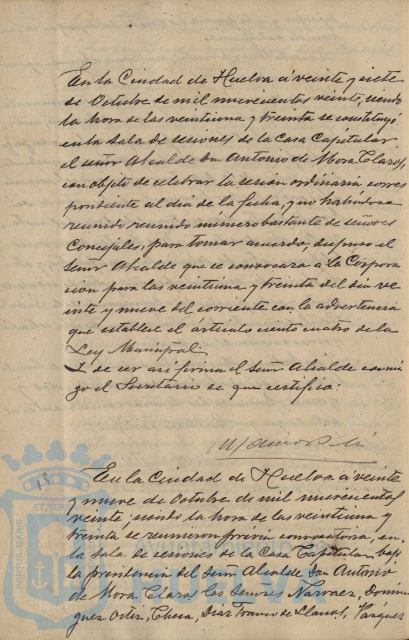 En la Ciudad de Huelva á veinte y siete
de Octubre de mil novecientos veinte, siendo
la hora de las veintiuna y treinta se constituyó
en la Sala de sesiones de la Casa Capitular
el señor Alcalde Don Antonio de Mora Claros,
con objeto de celebrar la sesión ordinaria corres
pondiente al dia de la fecha, y no habiendose
reunido reunido número bastante de señores
Concejales, para tomar acuerdo, dispuso el
Señor Alcalde que se convocara á la Corpora
ción para las veintiuna y treinta del dia ve
inte y nueve del corriente con la advertencia
que establece el artículo ciento cuatro de la
Ley Municipal.
Y de ser asi firma el Señor Alcalde conmi
go el Secretario de que certifico:
En la Ciudad de Huelva á veinte
y nueve de Octubre de mil novecientos
veinte, siendo la hora de las veintiuna y
treinta se reunieron previa convocatoria, en
la sala de sesiones de la Casa Capitular bajo
la presidencia del Señor Alcalde Don Antonio
de Mora Claros los Señores Narvaez, Domin
guez Ortiz, Checa, Diaz Franco de Llanos, Vazquez
PORTUS MARIS
ET TERR